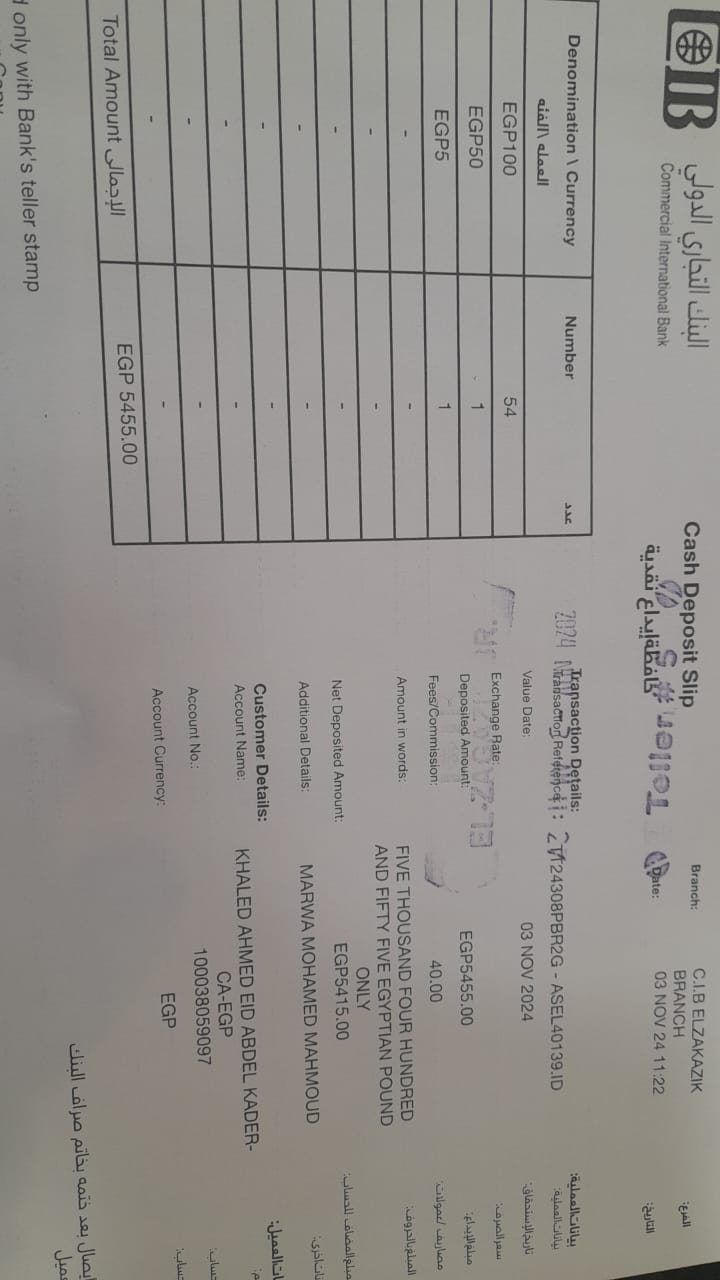 CIB
البنك التجاري الدولي
Commercial International Bank
Cash Deposit Slip
حافظة إيداع نقدية
Teller # 5
Branch: C.I.B ELZAKAZIK BRANCH الفرع:
Date: 03 NOV 24 11:22 التاريخ:
Denomination \ Currency العمله \ الفئه
Number عدد
EGP100 54
EGP50 1
EGP5 1
- -
- -
- -
- -
- -
- -
- -
- -
Total Amount الإجمالى EGP 5455.00
Transaction Details: بيانات العملية:
Transaction Reference: 24308PBR2G - ASEL40139.ID بيانات العملية:
Value Date: 03 NOV 2024 تاريخ الإستحقاق:
Exchange Rate: سعر الصرف:
Deposited Amount: EGP5455.00 مبلغ الإيداع:
Fees/Commission: 40.00 مصاريف / عمولات:
Amount in words: FIVE THOUSAND FOUR HUNDRED المبلغ بالحروف:
AND FIFTY FIVE EGYPTIAN POUND
ONLY
Net Deposited Amount: EGP5415.00 المضاف للحساب:
Additional Details: MARWA MOHAMED MAHMOUD
Customer Details: العميل:
Account Name: KHALED AHMED EID ABDEL KADER-
CA-EGP
Account No.: 100038059097
Account Currency: EGP
only with Bank's teller stamp
بعد ختمه بخاتم صراف البنك
2024 NOV
EL-ZAGAZIG